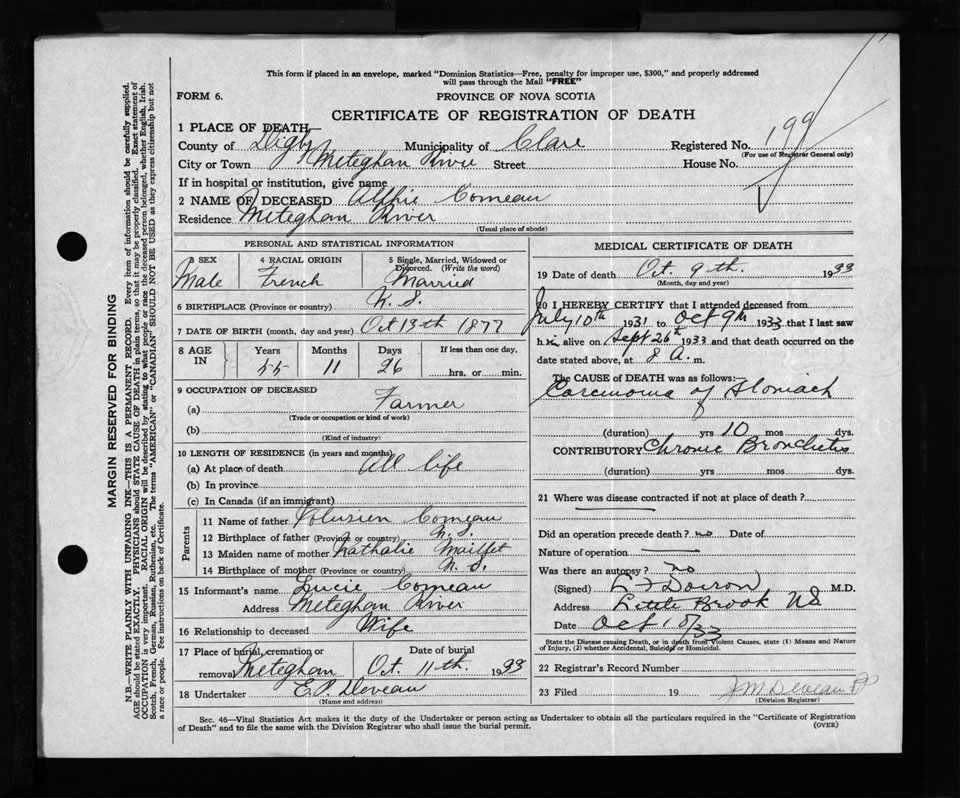 This form if placed in an envelope, marked "Dominion Statistics—Free, penalty for improper use, $300," and properly addressed
will pass through the Mail "FREE"
FORM 6.
PROVINCE OF NOVA SCOTIA
CERTIFICATE OF REGISTRATION OF DEATH
1 PLACE OF DEATH—
County of Digby Municipality of Clare Registered No. 199
(For use of Registrar General only)
City or Town Meteghan River Street House No.
If in hospital or institution, give name
2 NAME OF DECEASED Alphie Comeau
Residence Meteghan River
(Usual place of abode)
PERSONAL AND STATISTICAL INFORMATION
3 SEX Male
4 RACIAL ORIGIN French
5 Single, Married, Widowed or Divorced. (Write the word) Married
6 BIRTHPLACE (Province or country) N.S.
7 DATE OF BIRTH (month, day and year) Oct 13th 1877
8 AGE IN Years 55 Months 11 Days 26 If less than one day. hrs. or min.
9 OCCUPATION OF DECEASED
(a) Farmer
(Trade or occupation or kind of work)
(b)
(Kind of industry)
10 LENGTH OF RESIDENCE (in years and months)
(a) At place of death All life
(b) In province
(c) In Canada (if an immigrant)
Parents
11 Name of father Comeau
12 Birthplace of father (Province or country) N.S.
13 Maiden name of mother Nathalie Maillet
14 Birthplace of mother (Province or country) N.S.
15 Informant's name Lucie Comeau
Address Meteghan River
16 Relationship to deceased Wife
17 Place of burial, cremation or removal Meteghan Date of burial Oct. 11th. 1933
18 Undertaker E.P. Deveau
(Name and address)
MEDICAL CERTIFICATE OF DEATH
19 Date of death Oct. 9th. 1933
(Month, day and year)
20 I HEREBY CERTIFY that I attended deceased from
July 10th 1931 to Oct 9th 1933 that I last saw
him alive on Sept 26th 1933 and that death occurred on the
date stated above, at 8 A. m.
The CAUSE OF DEATH was as follows:
Carcinoma of Stomach
(duration) yrs 10 mos dys.
CONTRIBUTORY Chronic Bronchitis
(duration) yrs mos dys.
21 Where was disease contracted if not at place of death?
Did an operation precede death? no Date of
Nature of operation
Was there an autopsy? no
(Signed) L F Doiron M.D.
Address Little Brook NS
Date Oct 10/33
State the Disease causing Death, or in death from Violent Causes, state (1) Means and Nature
of Injury, (2) whether Accidental, Suicidal or Homicidal.
22 Registrar's Record Number
23 Filed 19 J M Deveau
(Division Registrar)
Sec. 46—Vital Statistics Act makes it the duty of the Undertaker or person acting as Undertaker to obtain all the particulars required in the "Certificate of Registration
of Death" and to file the same with the Division Registrar who shall issue the burial permit.
(OVER)
MARGIN RESERVED FOR BINDING
N.B.—WRITE PLAINLY WITH UNFADING INK—THIS IS A PERMANENT RECORD. Every item of information should be carefully supplied.
AGE should be stated EXACTLY. PHYSICIANS should STATE CAUSE OF DEATH in plain terms, so that it may be properly classified. Exact statement of
OCCUPATION is very important. RACIAL ORIGIN will be described by stating to what people or race the deceased person belonged, whether English, Irish,
Scotch, French, German, Russian, Ruthenian, etc. The terms "AMERICAN" or "CANADIAN" SHOULD NOT BE USED as they express citizenship but not
a race or people. See instructions on back of Certificate.